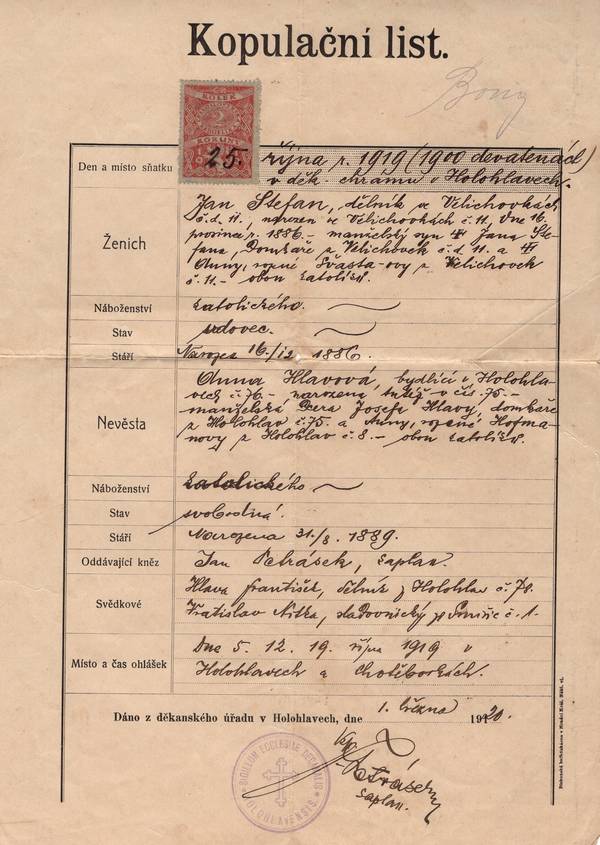 Kopulační list.
KOLEK
2
KORUNY
Den a místo sňatku
25. října r. 1919 (1900 devatenáct)
v děk. chrámu v Holohlavech.
Ženich
Jan Štefan, dělník ve Velichovkách
č.d. 11, narozen ve Velichovkách č. 11, dne 16.
prosince r. 1886. – manželský syn Jana Šte-
fana, Domkáře z Velichovek č.d. 11. a
Anny, rozené z Velichovek
č. 11. – obou katolíků.
Náboženství
katolického.
Stav
vdovec.
Stáří
Narozen 16./12. 1886.
Nevěsta
Anna Hlavová, bydlící v Holohla-
vech č. 76. – narozená tutéž v čís. 75. –
manželská Dcera Josefa Hlavy, domkáře
z Holohlav č. 75. a Anny, rozené Hofma-
novy z Holohlav č. 8. – obou katolíků.
Náboženství
katolického
Stav
svobodná.
Stáří
Narozena 31./8. 1889.
Oddávající kněz
Jan Petrásek, kaplan.
Svědkové
Hlava František, dělník z Holohlav č. 78.
Vratislav Nitka, č. 1.
Místo a čas ohlášek
Dne 5. 12. 19. října 1919 v
Holohlavech a Chotěborkách.
Dáno z děkanského úřadu v Holohlavech, dne 1. března 1920.
Petrásek
kaplan.
SIGILLUM ECCLESIAE DECANALIS HOLOHLAVENSIS